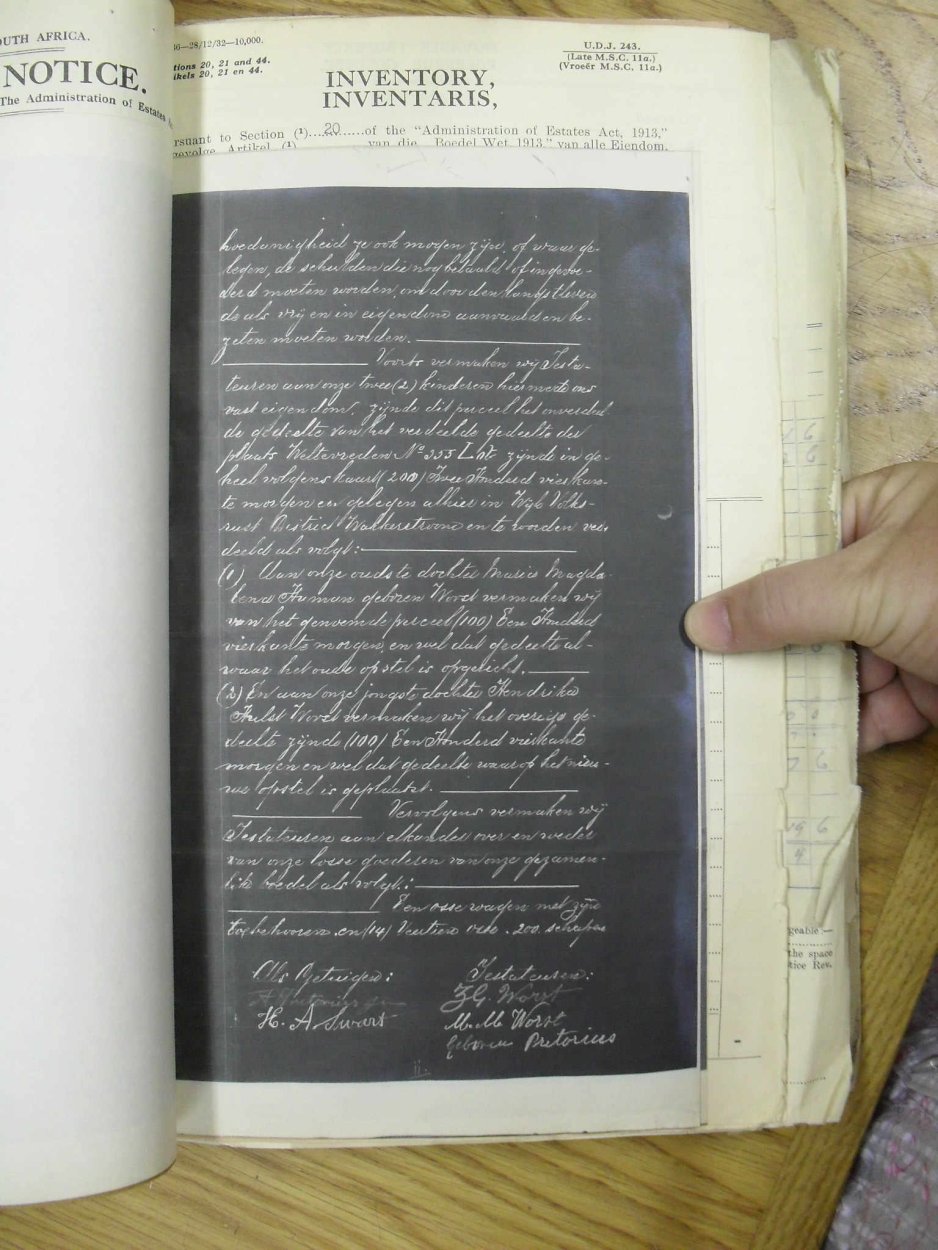 OUTH AFRICA.
NOTICE.
The Administration of Estates
36—28/12/32—10,000.
tions 20, 21 and 44.
ikels 20, 21 en 44.
U.D.J. 243.
(Late M.S.C. 11a.)
(Vroeër M.S.C. 11a.)
INVENTORY,
INVENTARIS,
rsuant to Section (1)....20.....of the "Administration of Estates Act, 1913,"
gevolge Artikel (1) van die „Boedel Wet, 1913," van alle Eiendom,
hoedanigheid ze ook mogen zijn, of waar ge-
legen, de schulden die nog betaald of ingevor-
derd moeten worden, om door den langstleven
de als vrij en in eigendom aanvaard en be-
zeten moeten worden.
Voorts vermaken wij Testa-
teuren aan onze twee (2) kinderen hiermede ons
vast eigendom, zijnde dit perceel het onverdeel
de gedeelte van het verdeelde gedeelte der
plaats Weltevreden No 355 Lot zijnde in ge-
heel volgens kaart (200) Twee Honderd vierkan-
te morgen en gelegen alhier in Wijk Volks-
rust District Wakkerstroom en te worden ver
deeld als volgt:
(1) Aan onze oudste dochter Maria Magda-
lena Human geboren Worst vermaken wij
van het genoemde perceel (100) Een Honderd
vierkante morgen, en wel dat gedeelte al-
waar het oude opstel is opgericht.
(2) En aan onze jongste dochter Hendrika
Hulst Worst vermaken wij het overige ge-
deelte zijnde (100) Een Honderd vierkante
morgen en wel dat gedeelte waarop het nieu-
we opstel is geplaatst.
Vervolgens vermaken wij
Testateuren aan elkander over en weder
van onze losse goederen van onze gezamen-
lik boedel als volgt:
Een osse wagen met zijn
toebehooren en (14) Veertien osse. 200 schapen
Als Getuigen:
Testateuren:
Z.G. Worst
H. A Swart
M. M Worst
geboren Pretorius
geable:—
the space
tice Rev.